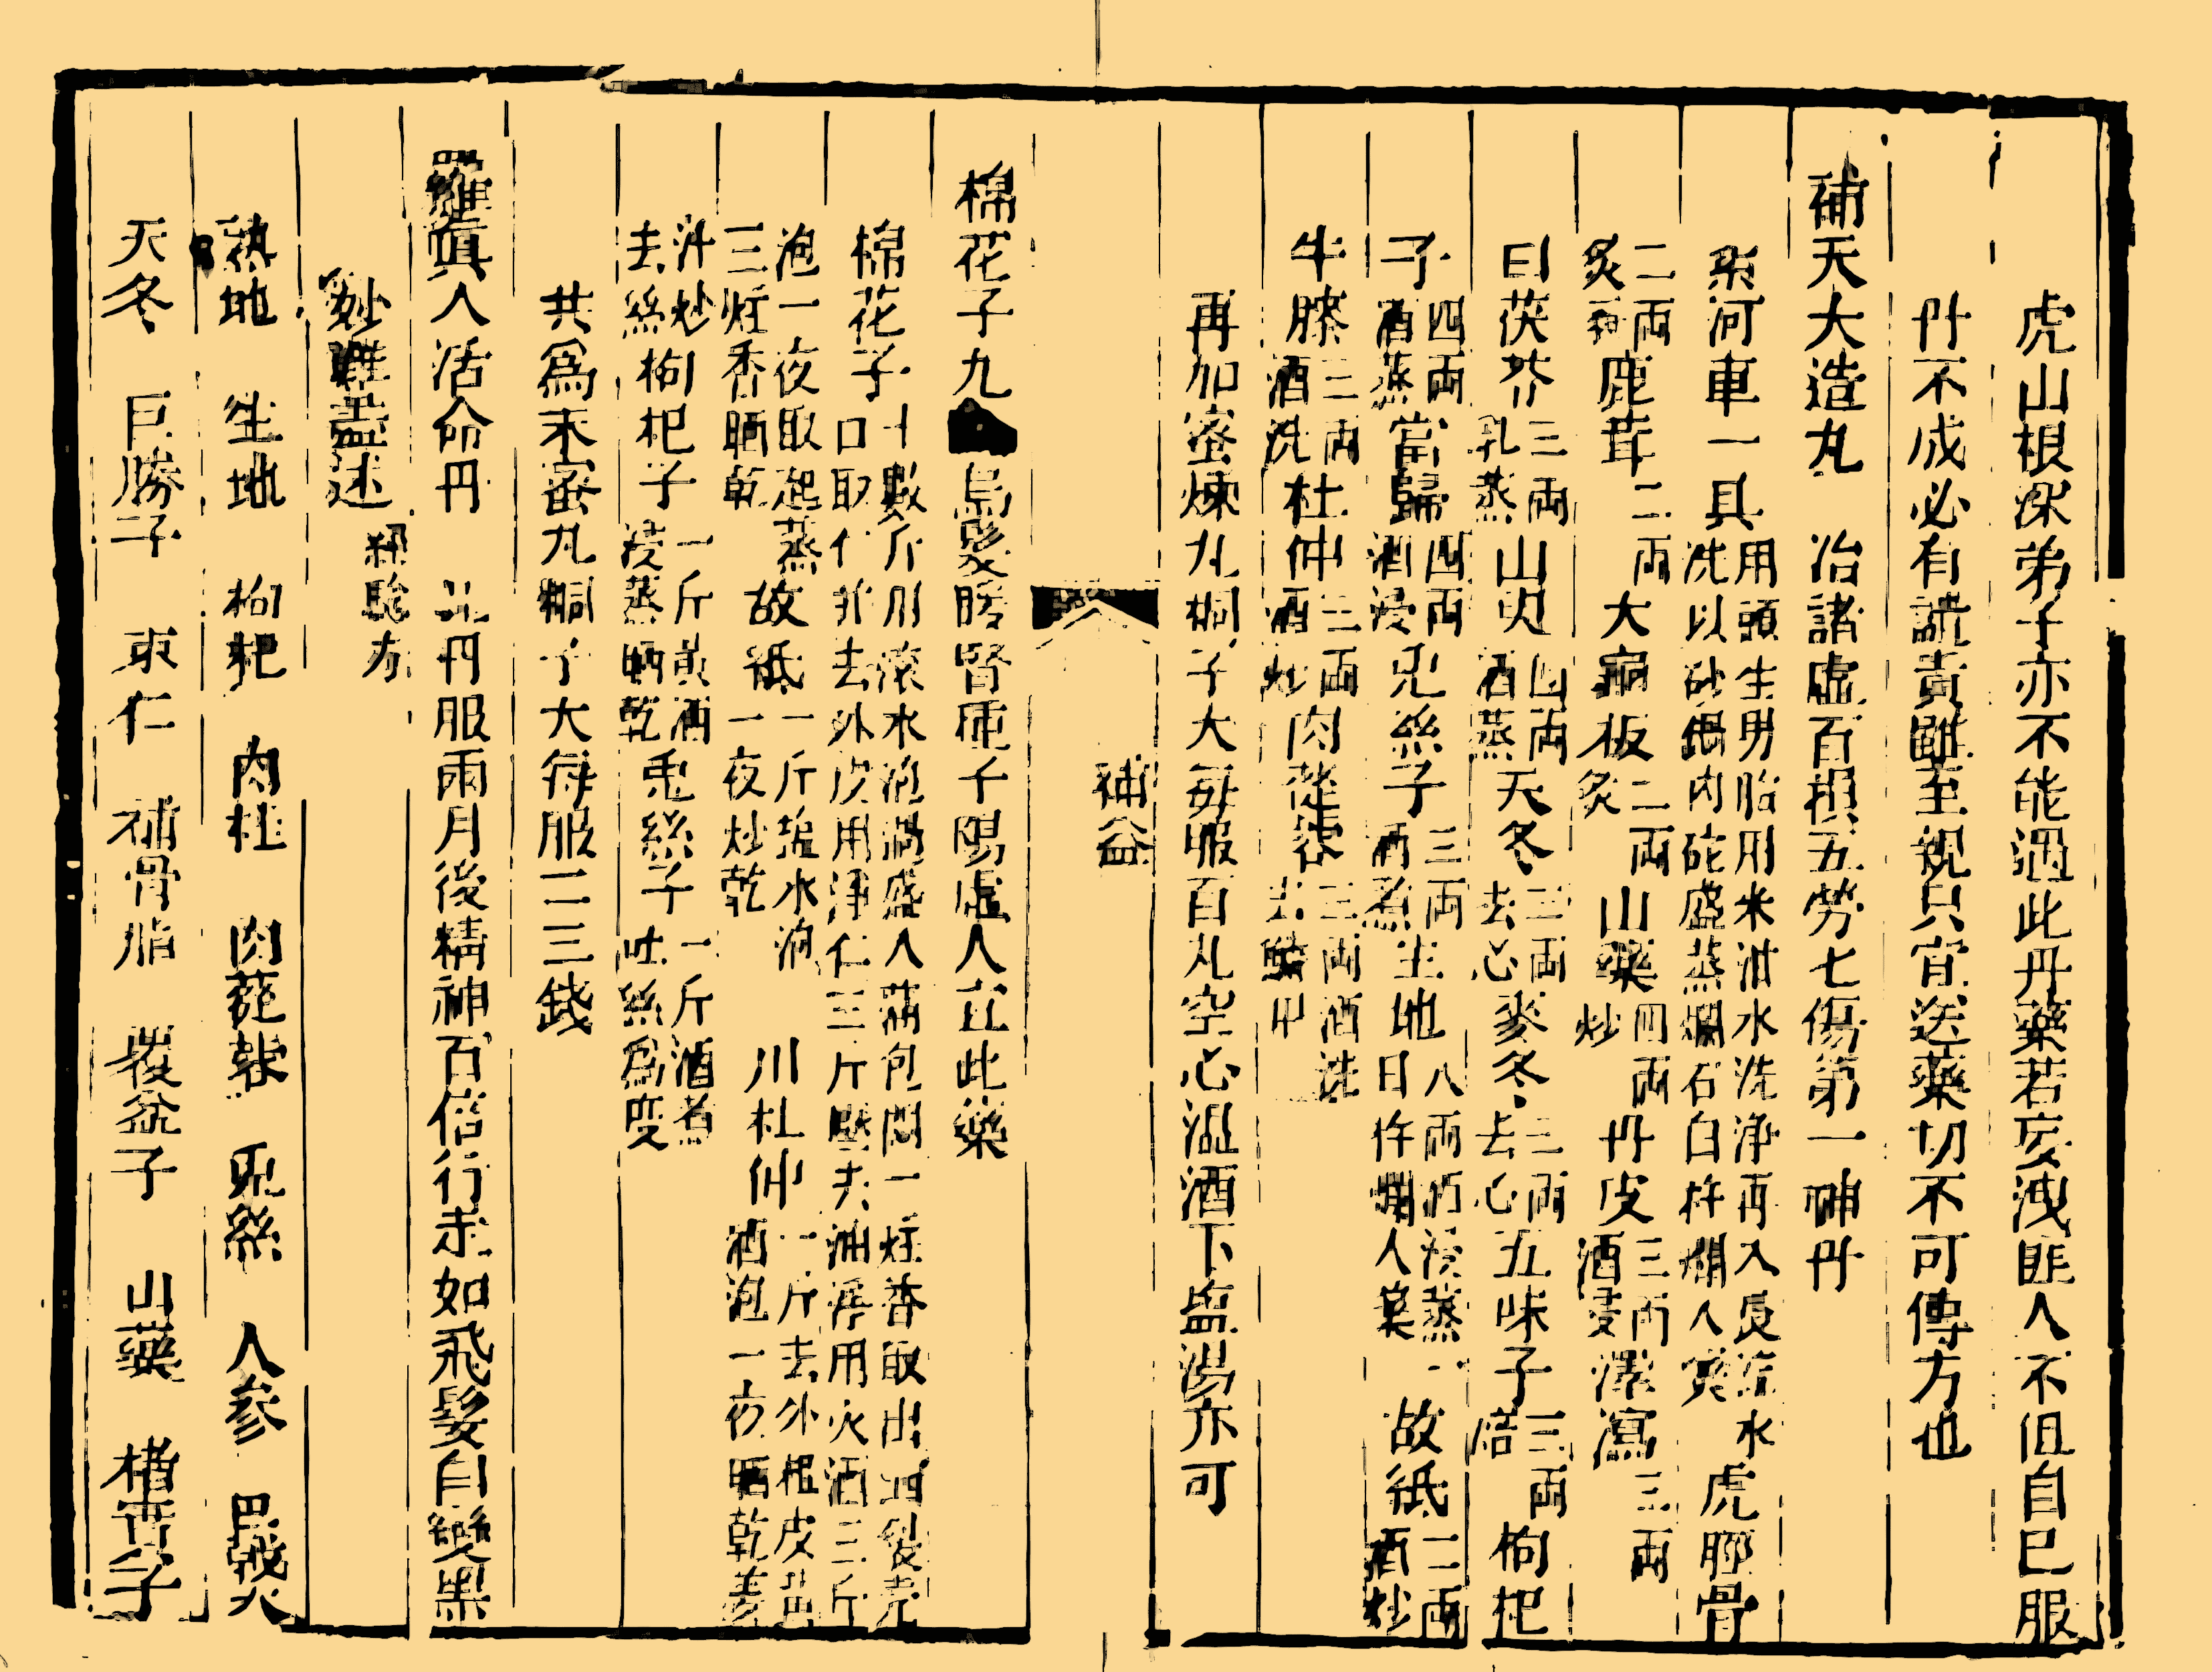 虎山根深弟子亦不能遇此丹藥若妄洩匪人不但自巳服
丹不成必有譴責雖至親只宜送藥切不可傳方也
補天大造丸　治諸虛百損五勞七傷第一神丹
紫河車一具用頭生男胎用米泔水洗淨再入長流水洗以砂鍋內砣盛蒸爛石臼杵爛入藥虎脛骨
二兩炙鹿茸二兩炙大龜板二兩炙山藥四兩炒丹皮三兩酒浸澤瀉三兩
白茯苓三兩乳蒸山萸四兩酒蒸天冬三兩去心麥冬三兩去心五味子三兩焙枸杞
子四兩酒蒸當歸四兩酒浸兔絲子三兩酒煮生地八兩酒浸蒸一日杵爛入藥故紙二兩酒炒
牛膝三兩酒洗杜仲三兩酒炒肉蓯蓉三兩酒洗去鱗甲
再加蜜煉丸桐子大每服百丸空心溫酒下鹽湯亦可
補益
棉花子丸　烏髮暖腎種子陽虛人宜此藥
棉花子十數斤用滾水泡過盛入蒲包悶一炷香取出晒裂壳口取仁並去外皮用淨仁三斤壓去油淨用火酒三斤
泡一夜取起蒸三炷香晒乾故紙一斤塩水泡一夜炒乾川杜仲一斤去外粗皮黃酒泡一夜晒乾姜
汁炒去絲枸杞子一斤黃酒浸蒸晒乾兎絲子一斤酒煮吐絲為度
共爲末蜜丸桐子大每服二三錢
羅真人活命丹　此丹服兩月後精神百倍行走如飛髮白變黑
妙難盡述　經驗方
熟地　生地　枸杞　肉桂　肉蓯蓉　兎絲　人參　巴戟
天冬　巨勝子　棗仁　補骨脂　覆盆子　山藥　楮實子